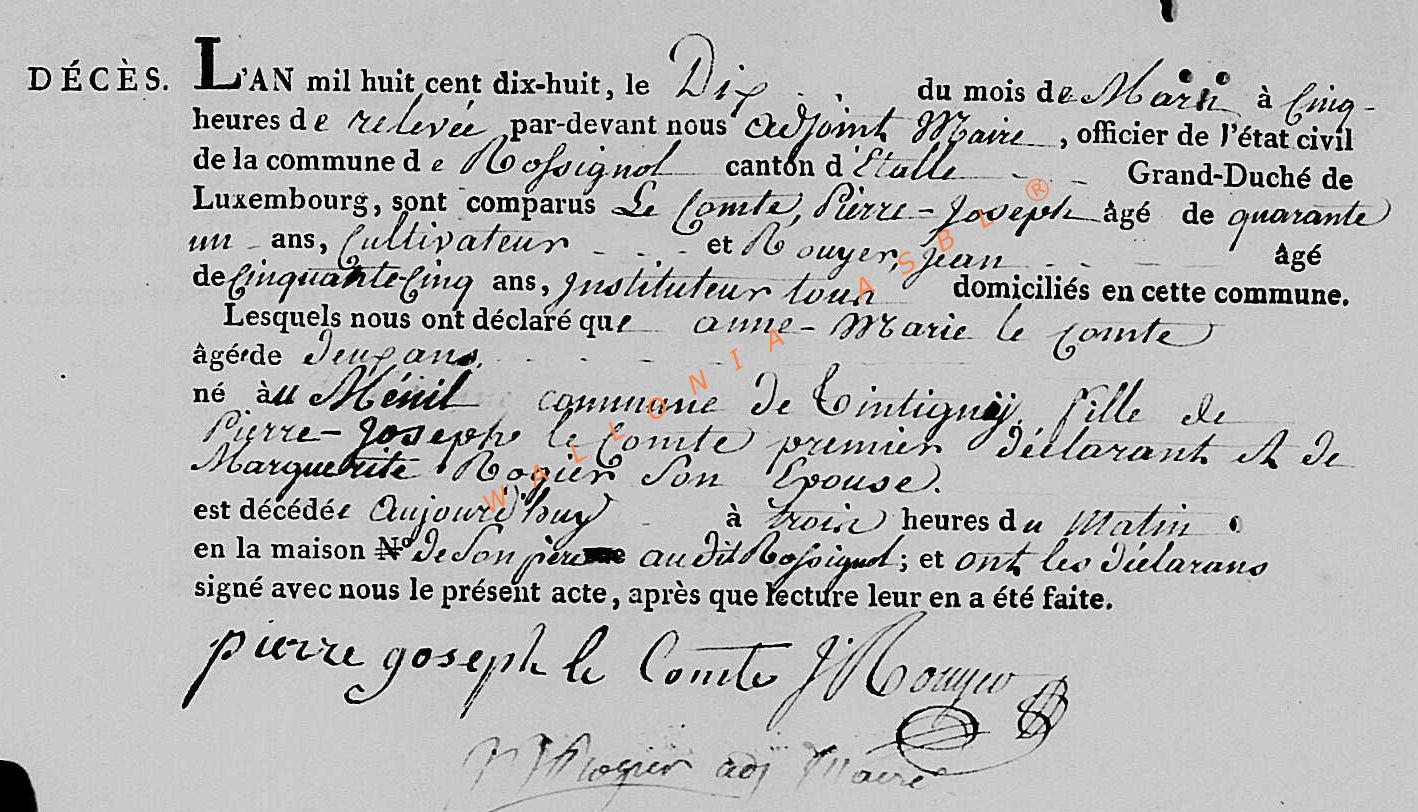 DÉCÈS. L'AN mil huit cent dix-huit, le Dix du mois de Mars à Cinq
heures de relevée par-devant nous adjoint Maire, officier de l'état civil
de la commune de Rossignol canton d'Etalle Grand-Duché de
Luxembourg, sont comparus Le Comte, Pierre-Joseph âgé de quarante
un ans, Cultivateur et Rouyer, Jean âgé
de Cinquante-Cinq ans, Instituteur tous domiciliés en cette commune.
Lesquels nous ont déclaré que anne-Marie le Comte
âgée de deux ans.
né àu Ménil commune de Tintigny, fille de
Pierre-Joseph le Comte premier déclarant et de
Marguerite Rogier Son Epouse.
est décédée aujourd'huy à trois heures du Matin
en la maison N° de Son père audit Rossignol; et ont les déclarans
signé avec nous le présent acte, après que lecture leur en a été faite.
pierre goseph le Comte J Rouyer
Rogier adj Maire
WALLONIA ASBL ®